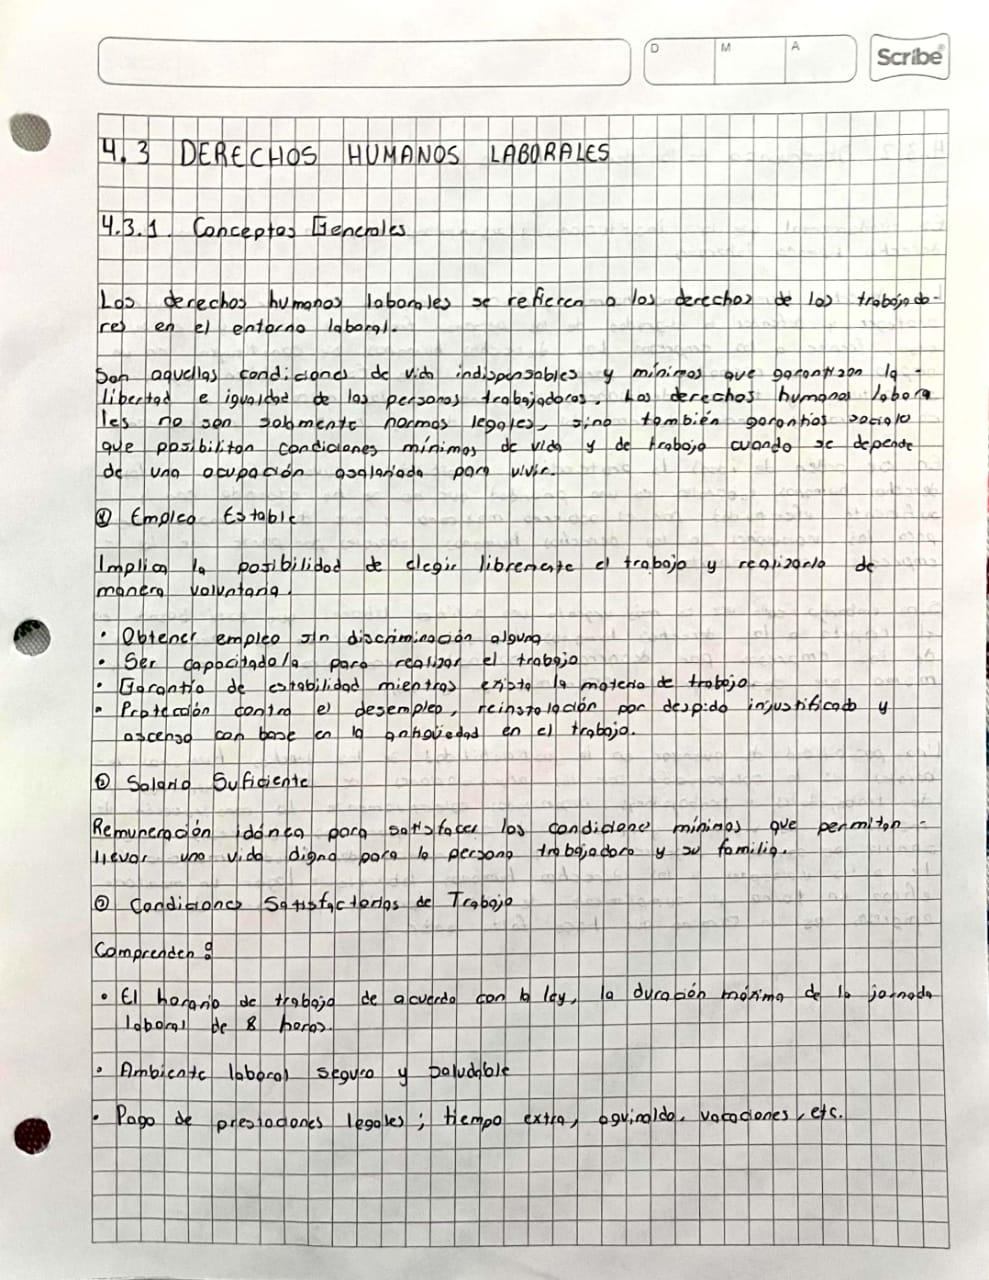 D M A Scribe
4.3 DERECHOS HUMANOS LABORALES
4.3.1. Conceptos Generales
Los derechos humanos laborales se refieren a los derechos de los trabajado-
res en el entorno laboral.
Son aquellas condiciones de vida indispensables y mínimas que garantizan la -
libertad e igualdad de las personas trabajadoras. Los derechos humanos labora
les no son solamente normas legales, sino también garantías sociales
que posibilitan condiciones mínimas de vida y de trabajo cuando se depende
de una ocupación asalariada para vivir.
Empleo Estable
Implica la posibilidad de elegir libremente el trabajo y realizarlo de
manera voluntaria.
• Obtener empleo sin discriminación alguna
• Ser capacitado/a para realizar el trabajo
• Garantía de estabilidad mientras exista la materia de trabajo
• Protección contra el desempleo, reinstalación por despido injustificado y
ascenso con base en la antigüedad en el trabajo.
Salario Suficiente
Remuneración idónea para satisfacer las condiciones mínimas que permitan -
llevar una vida digna para la persona trabajadora y su familia.
Condiciones Satisfactorias de Trabajo
Comprenden:
• El horario de trabajo de acuerdo con la ley, la duración máxima de la jornada
laboral de 8 horas.
• Ambiente laboral seguro y saludable
• Pago de prestaciones legales; tiempo extra, aguinaldo, vacaciones, etc.